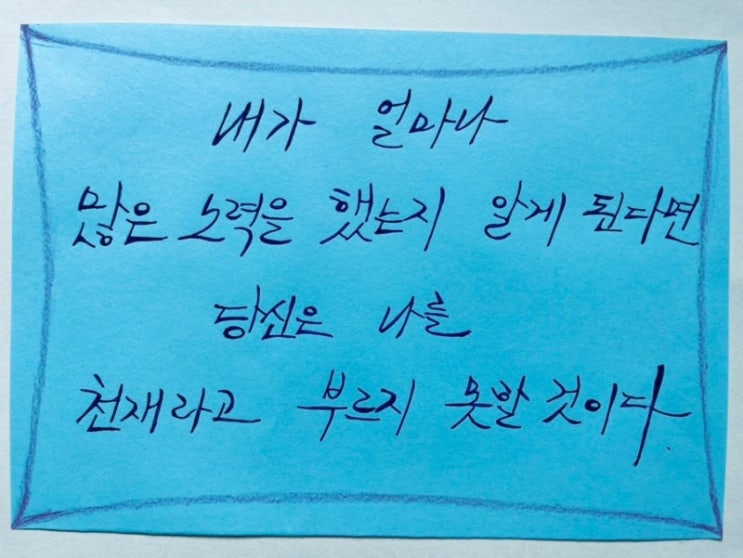 내가 얼마나
많은 노력을 했는지 알게 된다면
당신은 나를
천재라고 부르지 못할 것이다.